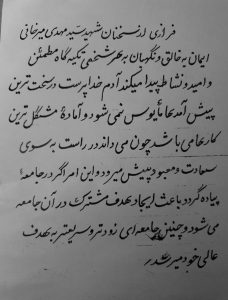 فرازی از سخنان شهید سید مهدی میرخانی
ایمان به خالق و نگهبان به هر شخصی تکیه گاه مطمئن
و امید و نشاط پیدا میکند آدم خداپرست در سخت ترین
پیش آمدها مأیوس نمی شود و آمادهٔ مشکل ترین
کارها می باشد چون می داند در راست به سوی
سعادت و معبود پیش میرود و این امر اگر در جامعه
پیاده گردد باعث ایجاد هدف مشترک در آن جامعه
می شود و چنین جامعه ای زودتر و سریعتر به هدف
عالی خود میرسد